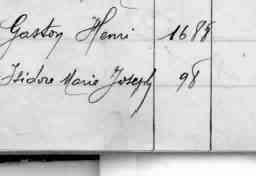 Gaston Henri 1688
Isidore Marie Joseph 98